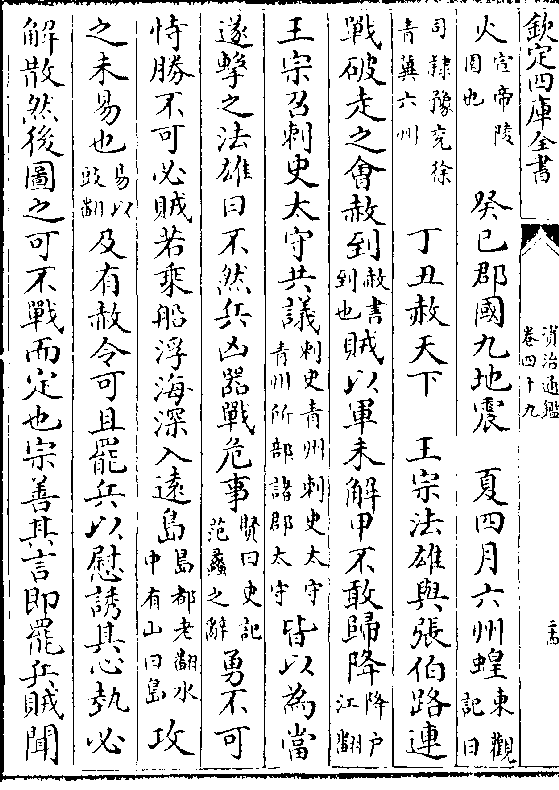 欽定四庫全書
資治通鑑
卷四十九
火宣帝陵園也 癸巳郡國九地震 夏四月六州蝗東觀記曰
司隸豫兖徐青冀六州 丁丑赦天下 王宗法雄與張伯路連
戰破走之會赦到赦書到也賊以軍未解甲不敢歸降降户江翻
王宗召刺史太守共議刺史青州刺史太守青州所部諸郡太守皆以為當
遂擊之法雄曰不然兵凶器戰危事賢曰史記范蠡之辭勇不可
恃勝不可必賊若乘船浮海深入遠島島都老翻水中有山曰島攻
之未易也易以豉翻及有赦令可且罷兵以慰誘其心埶必
解散然後圖之可不戰而定也宗善其言即罷兵賊聞